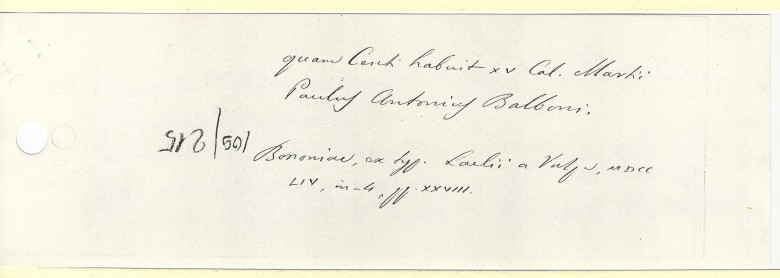 quam Centi habuit XV Cal. Martii
Paulus Antonius Balboni.
Bononiae, ex typ. Laelii a Vulpe, MDCC
LIV, in-4, pp. XXVIII.